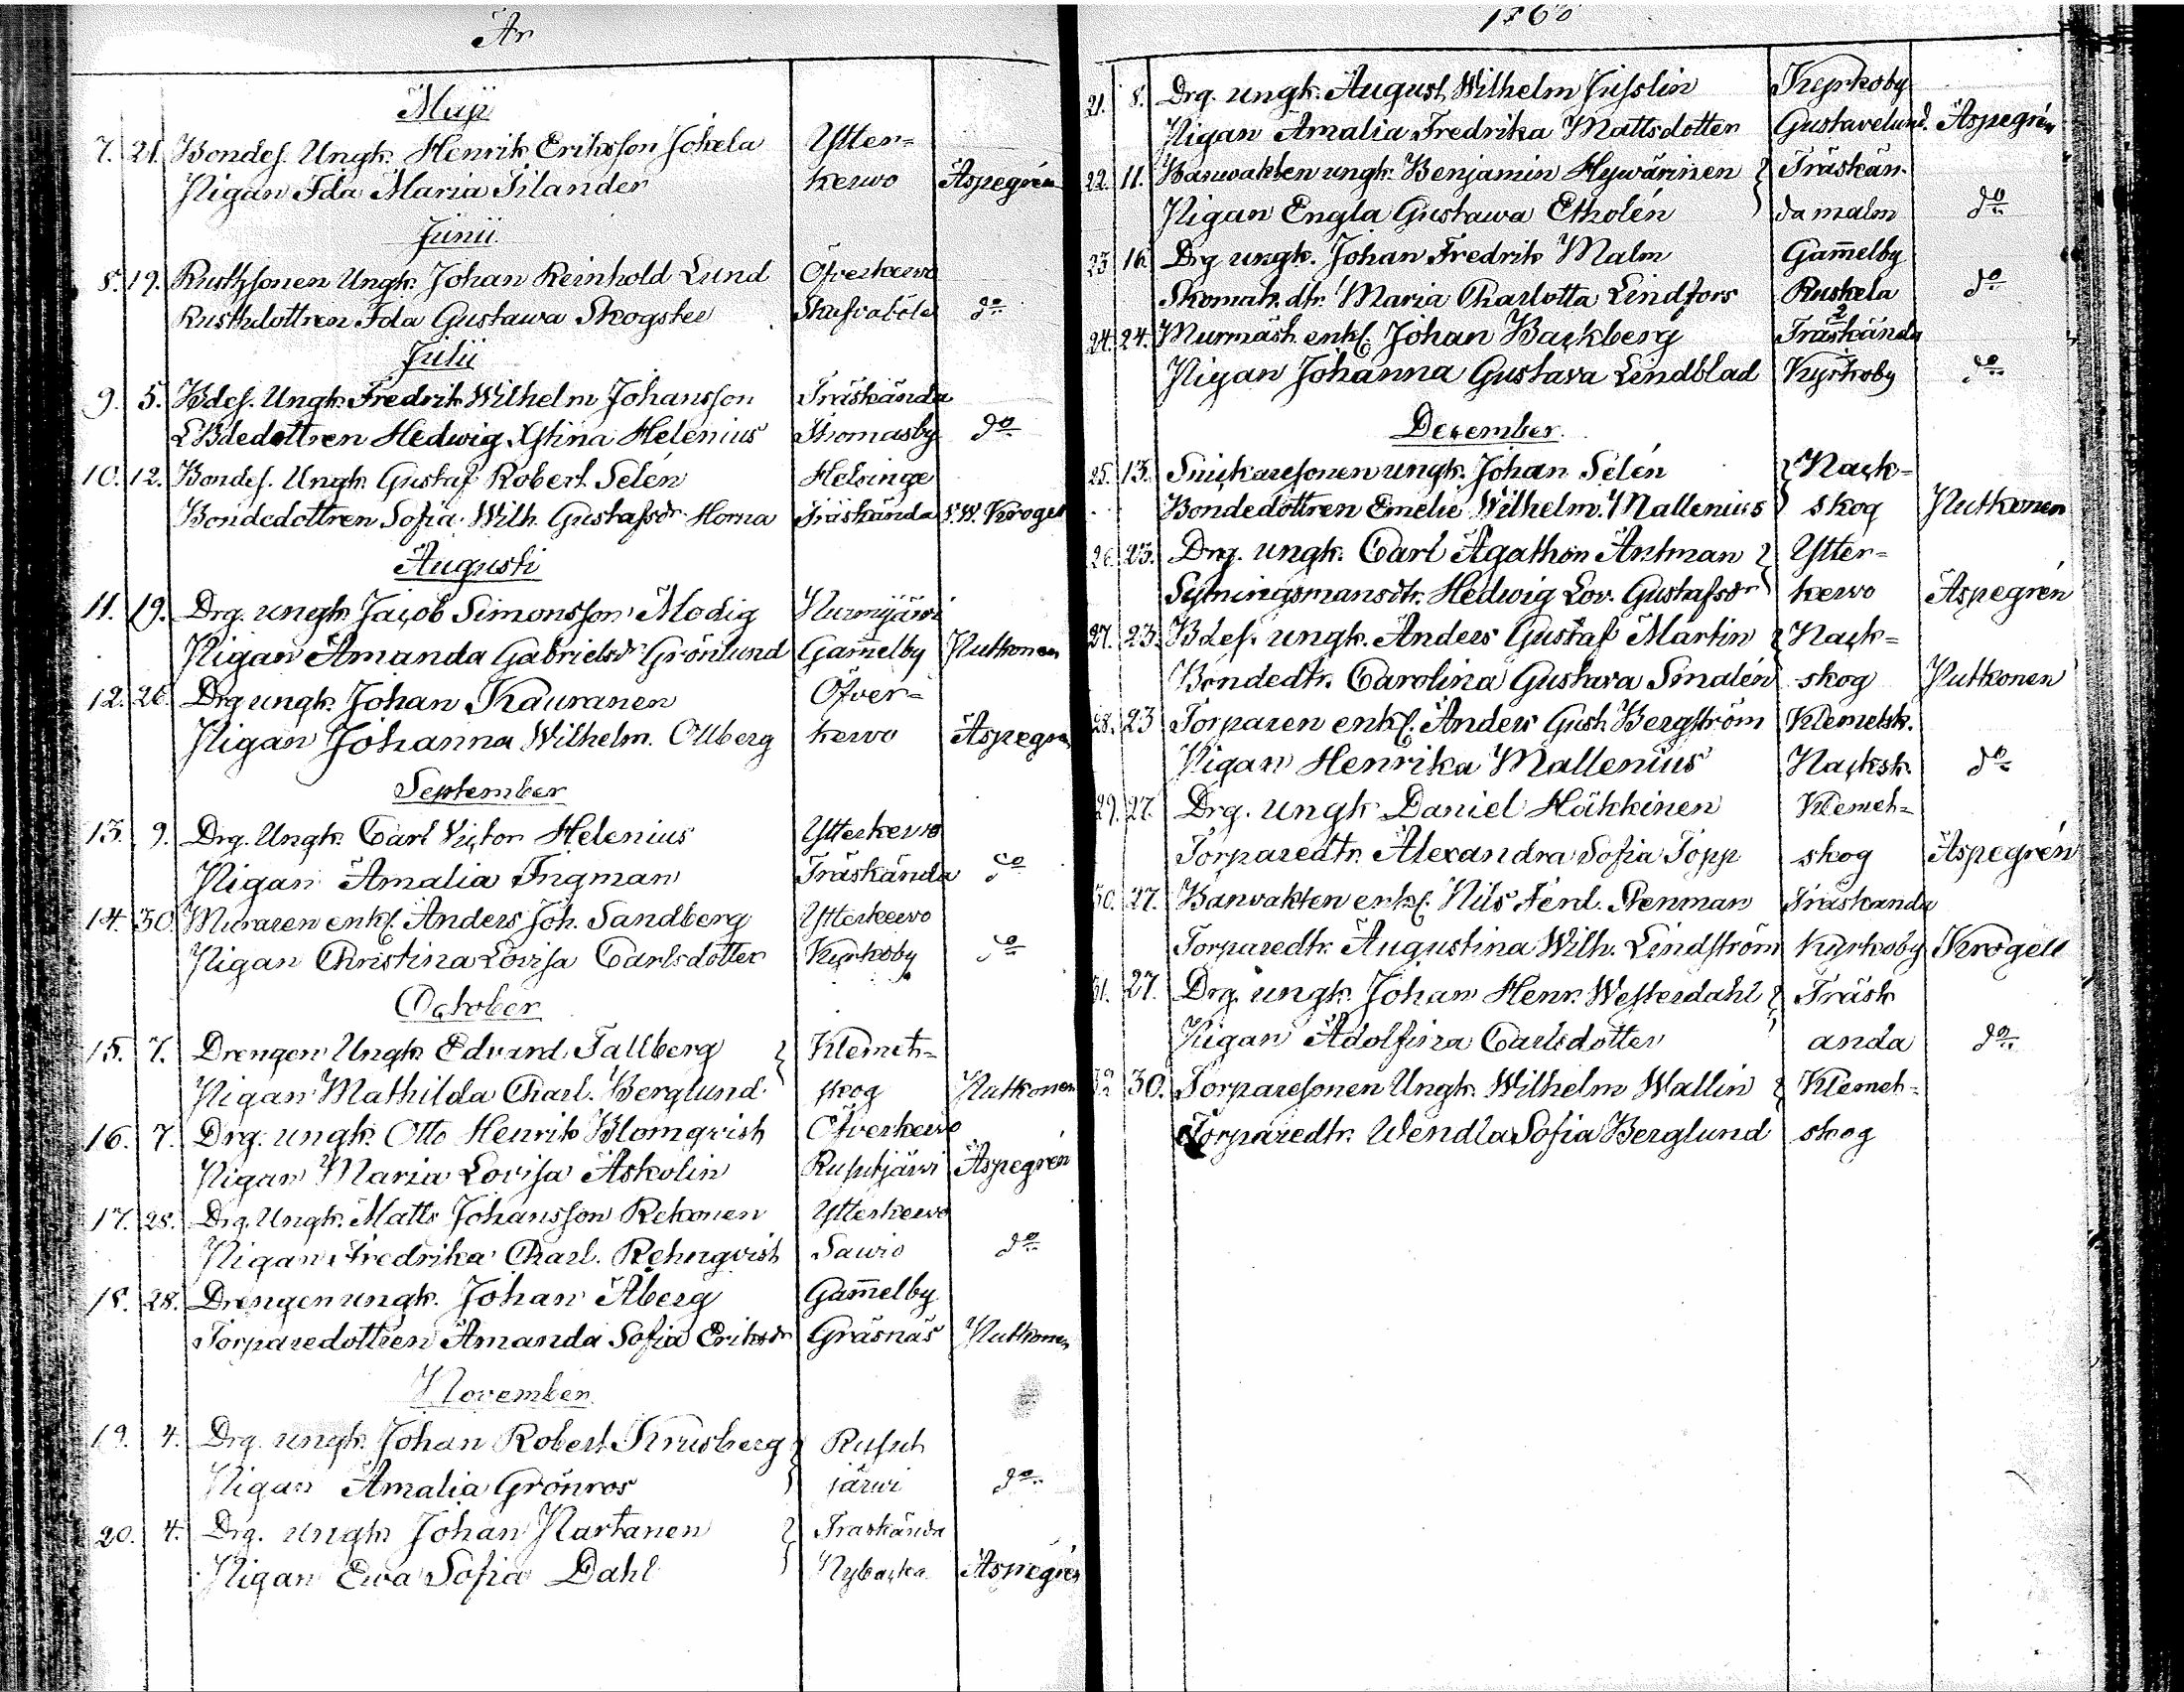 År
Maji
7. 21. Bondes. Ungk. Henrik Eriksson Jokela Ytter=
Pigan Ida Maria Silander kerwo Aspegrén
Junii
8. 19. Rusth.sonen Ungk. Johan Reinhold Lund Öfverkerwo
Rusth.dottren Ida Gustawa Skogster Skafvaböle do
Julii
9. 5. Bdes. Ungk. Fredrik Wilhelm Johansson Träskända
Bdedottren Hedwig Xstina Helenius Thomasby do
10. 12. Bondes. Ungk. Gustaf Robert Selén Helsinge
Bondedottren Sofia Wilh. Gustafsdr Horna Träskända Krogell
Augusti
11. 19. Drg. ungk. Jacob Simonsson Modig Nurmijärvi
Pigan Amanda Gabrielsdr Grönlund Gam̅elby Putkonen
12. 26. Drg ungk. Johan Kauranen Öfver=
Pigan Johanna Wilhelm. Ollberg kerwo Aspegrén
September
13. 9. Drg. Ungk. Carl Victor Helenius Ytterkerwo
Pigan Amalia Ingman Träskända do
14. 30. Muraren enkl. Anders Joh. Sandberg Ytterkerwo
Pigan Christina Lovisa Carlsdotter Kyrkoby do
October
15. 7. Drengen Ungk. Edvard Tallberg Klemet=
Pigan Mathilda Charl. Berglund skog Putkonen
16. 7. Drg. ungk. Otto Henrik Blomqvist Öfverkerwo
Pigan Maria Lovisa Askolin Rusutjärvi Aspegrén
17. 28. Drg. Ungk. Matts Johansson Rekonen Ytterkerwo
Pigan Fredrika Charl. Rehnqvist Sawio do
18. 28. Drengen ungk. Johan Åberg Gam̅elby
Torparedottren Amanda Sofia Eriksdr Gräsnäs Putkonen
November
19. 4. Drg. ungk. Johan Robert Krusberg Rusut
Pigan Amalia Grönros järwi do
20. 4. Drg. ungk. Johan Partanen Träskända
Pigan Ewa Sofia Dahl Nybacka Aspegrén
1860
21. 8. Drg. ungk. August Wilhelm Jusslin Kyrkoby
Pigan Amalia Fredrika Mattsdotter Gustavelund. Aspegrén
22. 11. Banvakten ungk. Benjamin Hywärinen Träskän
Pigan Engla Gustawa Etholén da malm do
23 16. Drg ungk. Johan Fredrik Malm Gam̅elby
Skomak. dtr. Maria Charlotta Lindfors Ruskela do
24. 24. Murmäst. enkl. Johan Backberg Träskända
Pigan Johanna Gustava Lindblad Kyrkoby do
December
25. 13. Snickaresonen ungk. Johan Selén Nack=
Bondedottren Emelie Wilhelm. Mallenius skog Putkonen
26. 23. Drg. ungk. Carl Agathon Antman Ytter=
Sytningsmansdtr. Hedwig Lov. Gustafsdr kerwo Aspegrén
27. 23. Bdes. ungk. Anders Gustaf Martin Nack=
Bondedtr. Carolina Gustava Smalén skog Putkonen
28. 23 Torparen enkl. Anders Gust. Bergström Klemetsk.
Pigan Henrika Mallenius Nacksk. do
29. 27. Drg. ungk. Daniel Häkkinen Klemet=
Torparedtr. Alexandra Sofia Topp skog Aspegrén
30. 27. Banvakten enkl. Nils Ferd. Stenman Träskända
Torparedtr. Augustina Wilh. Lindström Kyrkoby Krogell
31. 27. Drg. ungk. Johan Henr. Westerdahl Träsk
Pigan Adolfina Carlsdotter anda do
32 30. Torparesonen Ungk. Wilhelm Wallin Klemet=
Torparedtr. Wendla Sofia Berglund skog